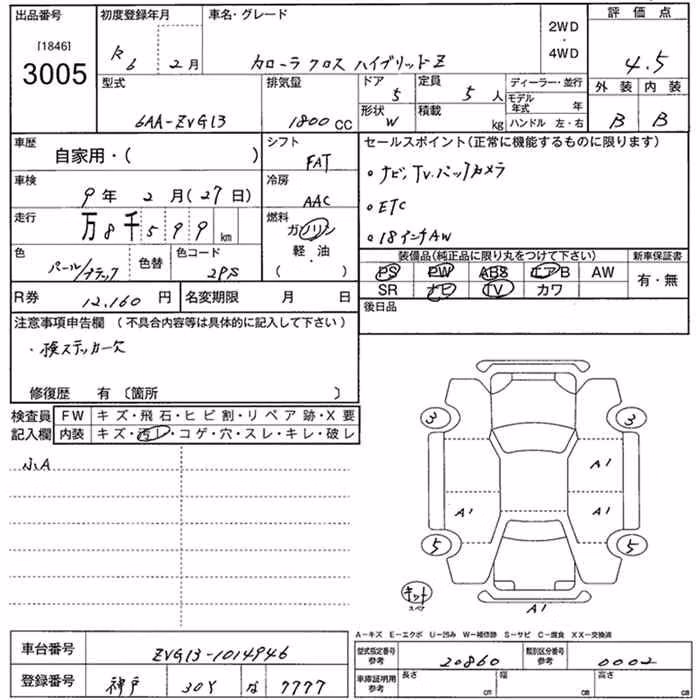 出品番号 [1846] 3005
初度登録年月 R6 2月
車名・グレード カローラクロス ハイブリッドZ
2WD・4WD
評価点 4.5
外装 B 内装 B
型式 6AA-ZVG13
排気量 1800 CC
ドア 5
定員 5人
形状 W
積載 kg
ディーラー・並行
モデル年式 年
ハンドル 左・右
車歴 自家用・( )
シフト FAT
車検 9年2月(27日)
冷房 AAC
走行 万8千599km
燃料 ガソリン 軽・油 ( )
色 パール/ブラック
色替
色コード 2PS
R券 12,160円
名変期限 月 日
セールスポイント(正常に機能するものに限ります)
・ナビ, TV, バックカメラ
・ETC
・18インチAW
装備品(純正品に限り丸をつけて下さい)
新車保証書
PS PW ABS エアB AW
有・無
SR ナビ TV カワ
後日品
注意事項申告欄 (不具合内容等は具体的に記入して下さい)
・検ステッカー欠
修復歴 有〔箇所 〕
検査員記入欄
FW キズ・飛石・ヒビ割・リペア跡・X要
内装 キズ・汚レ・コゲ・穴・スレ・キレ・破レ
小A
3 3
A1
A1 A1
5 5
キット
スペア
A1
A-キズ E-エクボ U-凹み W-補修跡 S-サビ C-腐食 XX-交換済
車台番号 ZVG13-1014946
登録番号 神戸 301 な 7777
型式指定番号 参考 20860
類別区分番号 参考 0002
車庫証明用 参考 長さ cm 幅 cm 高さ cm